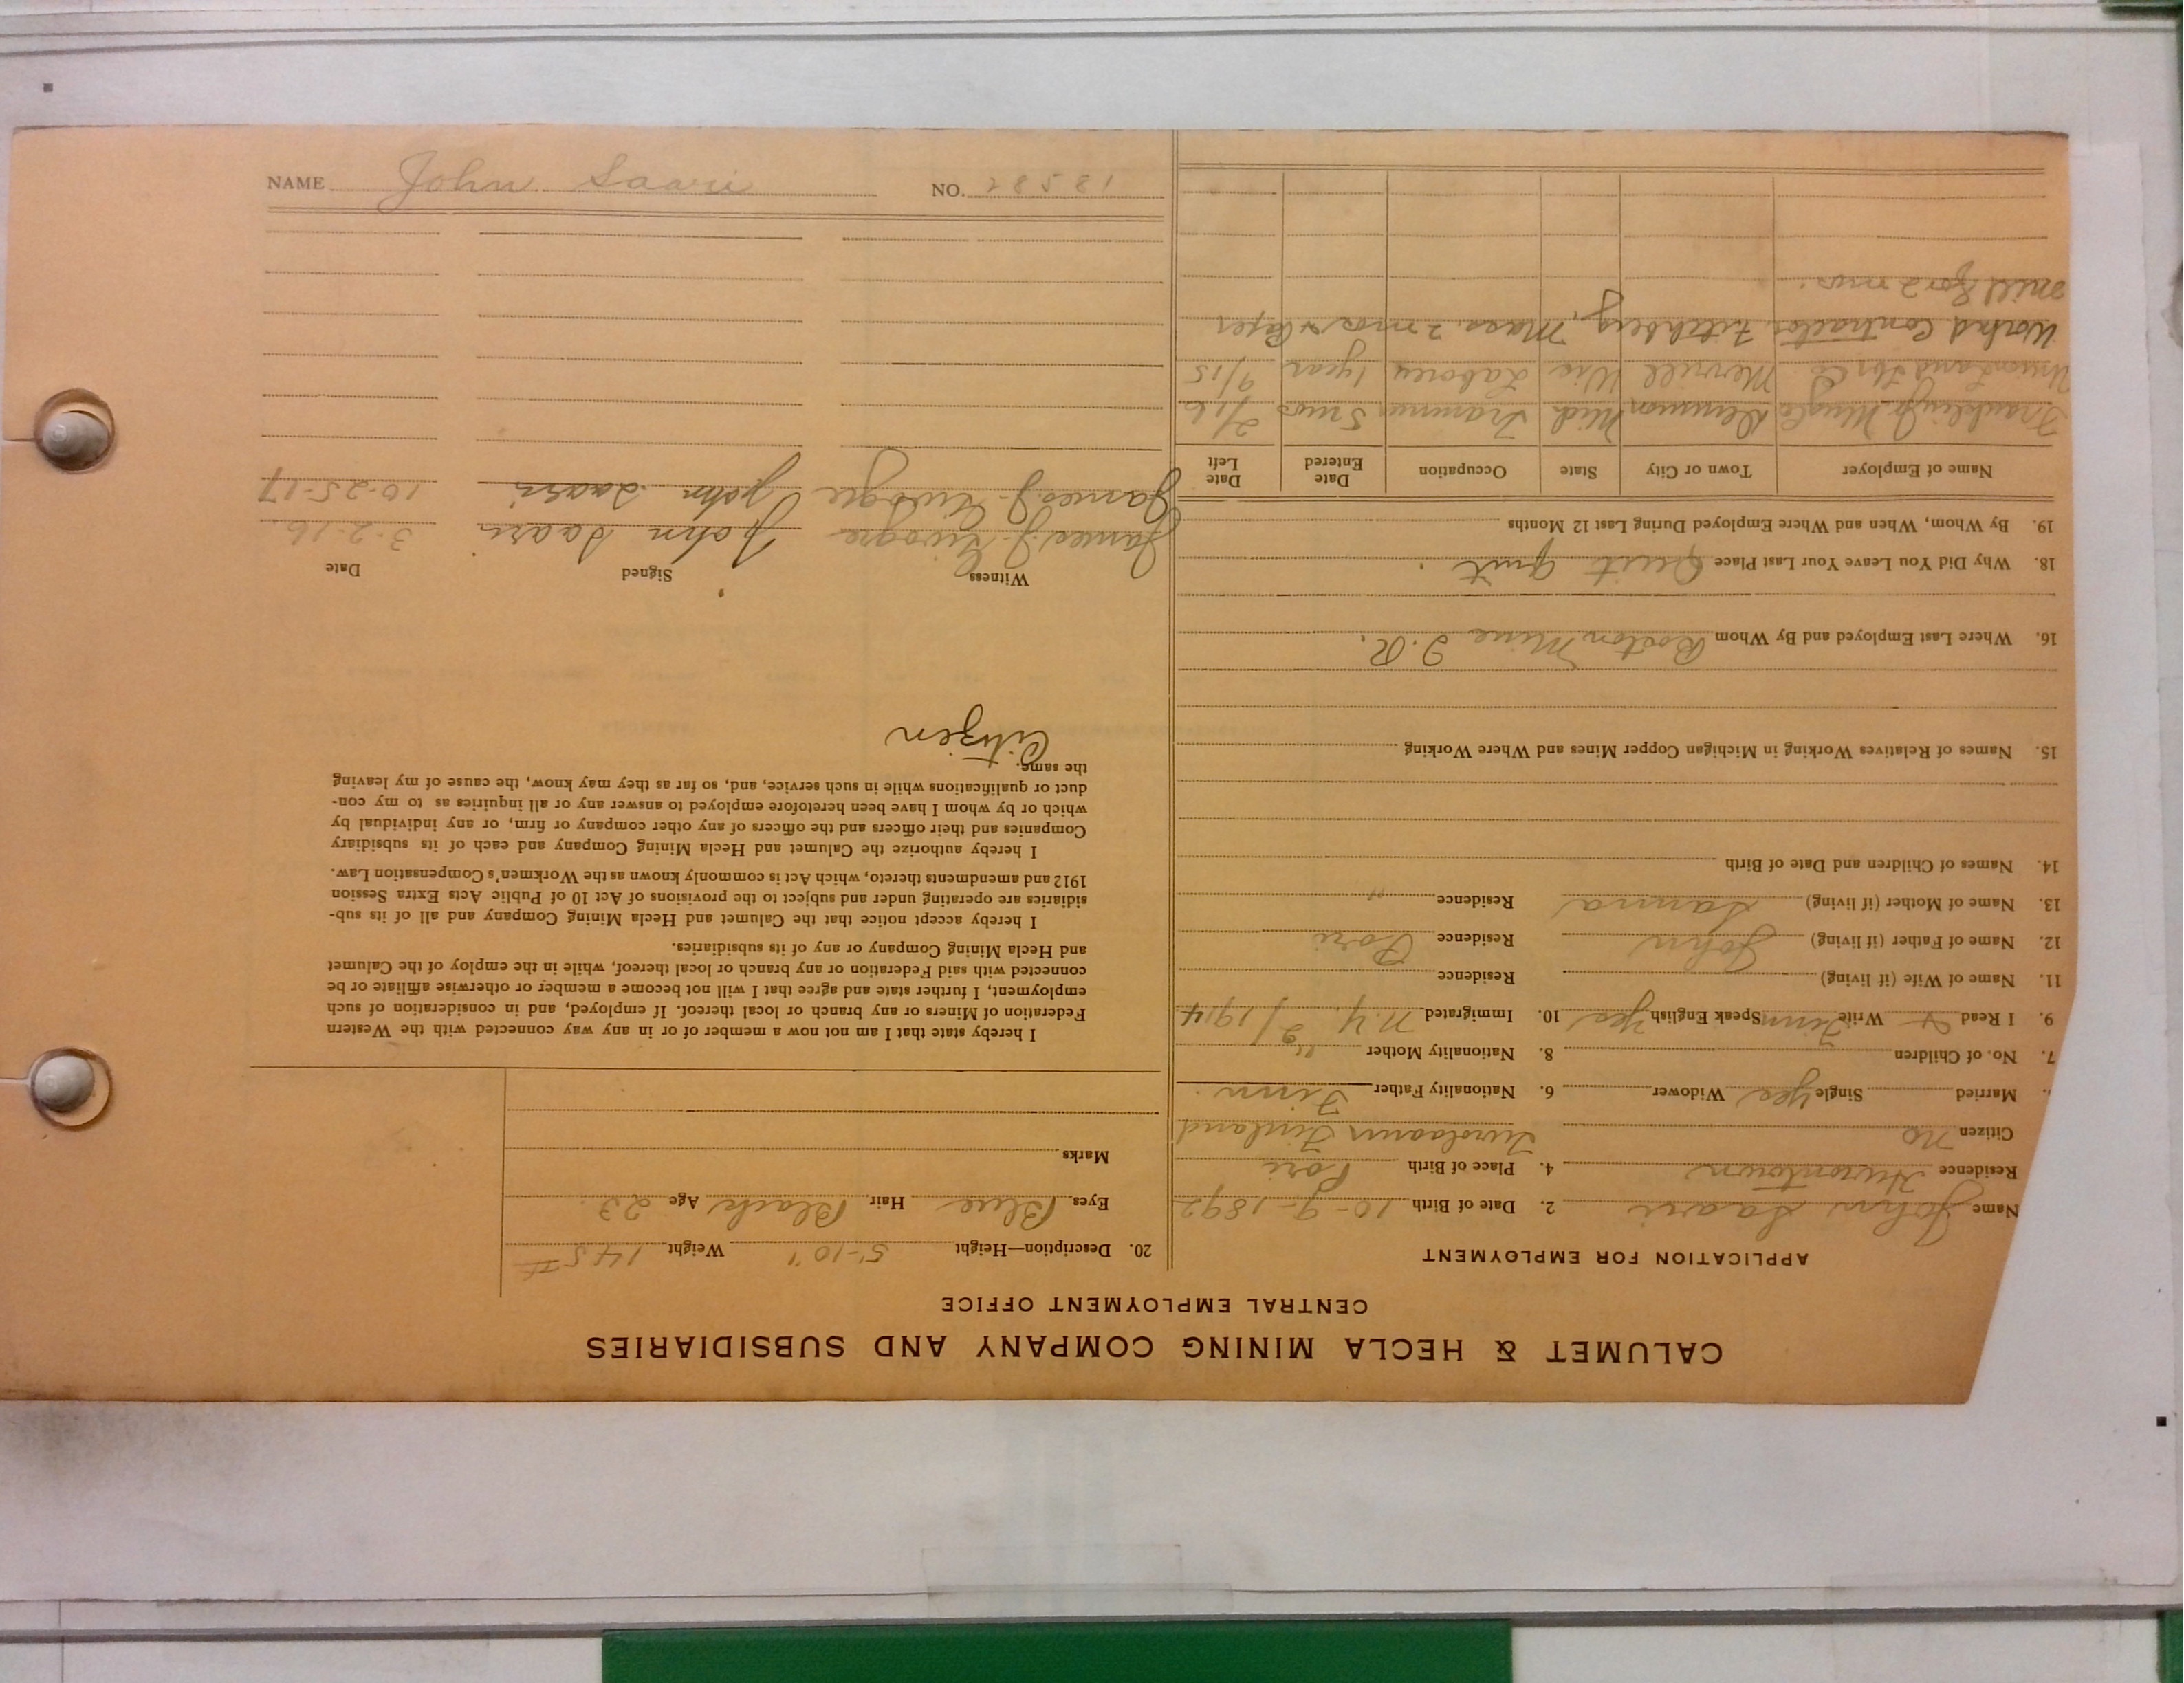 CALUMET & HECLA MINING COMPANY AND SUBSIDIARIES
CENTRAL EMPLOYMENT OFFICE
APPLICATION FOR EMPLOYMENT
Name John Saari 2. Date of Birth 10-9-1892
Residence Hurontown 4. Place of Birth Pori
Citizen No Finland
Married Single Yes Widower 6. Nationality Father Finn
7. No. of Children 8. Nationality Mother "
9. I Read & Write Finn Speak English Yes 10. Immigrated N.Y. 2/1914
11. Name of Wife (if living) Residence
12. Name of Father (if living) John Residence Pori
13. Name of Mother (if living) Sanna Residence "
14. Names of Children and Date of Birth
15. Names of Relatives Working in Michigan Copper Mines and Where Working
16. Where Last Employed and By Whom Boston Mine
18. Why Did You Leave Your Last Place Quit Quit
19. By Whom, When and Where Employed During Last 12 Months
Name of Employer Town or City State Occupation Date Entered Date Left
Franklin Jr Mng Co Demmon Mich Trammer 5 mos 2/16
Union Land Co. Merrill Wis Laborer 1 year 9/15
Worked Contractor Fitchberg, Mass. 2 mos & Paper
Mill for 2 mos.
20. Description—Height 5'-10" Weight 145 #
Eyes Blue Hair Black Age 23
Marks
I hereby state that I am not now a member of or in any way connected with the Western
Federation of Miners or any branch or local thereof. If employed, and in consideration of such
employment, I further state and agree that I will not become a member or otherwise affiliate or be
connected with said Federation or any branch or local thereof, while in the employ of the Calumet
and Hecla Mining Company or any of its subsidiaries.
I hereby accept notice that the Calumet and Hecla Mining Company and all of its sub-
sidiaries are operating under and subject to the provisions of Act 10 of Public Acts Extra Session
1912 and amendments thereto, which Act is commonly known as the Workmen's Compensation Law.
I hereby authorize the Calumet and Hecla Mining Company and each of its subsidiary
Companies and their officers and the officers of any other company or firm, or any individual by
which or by whom I have been heretofore employed to answer any or all inquiries as to my con-
duct or qualifications while in such service, and, so far as they may know, the cause of my leaving
the same.
Citizen
Witness Signed Date
James J. John Saari 3-2-16
James J. John Saari 10-25-17
NAME John Saari NO. 18582